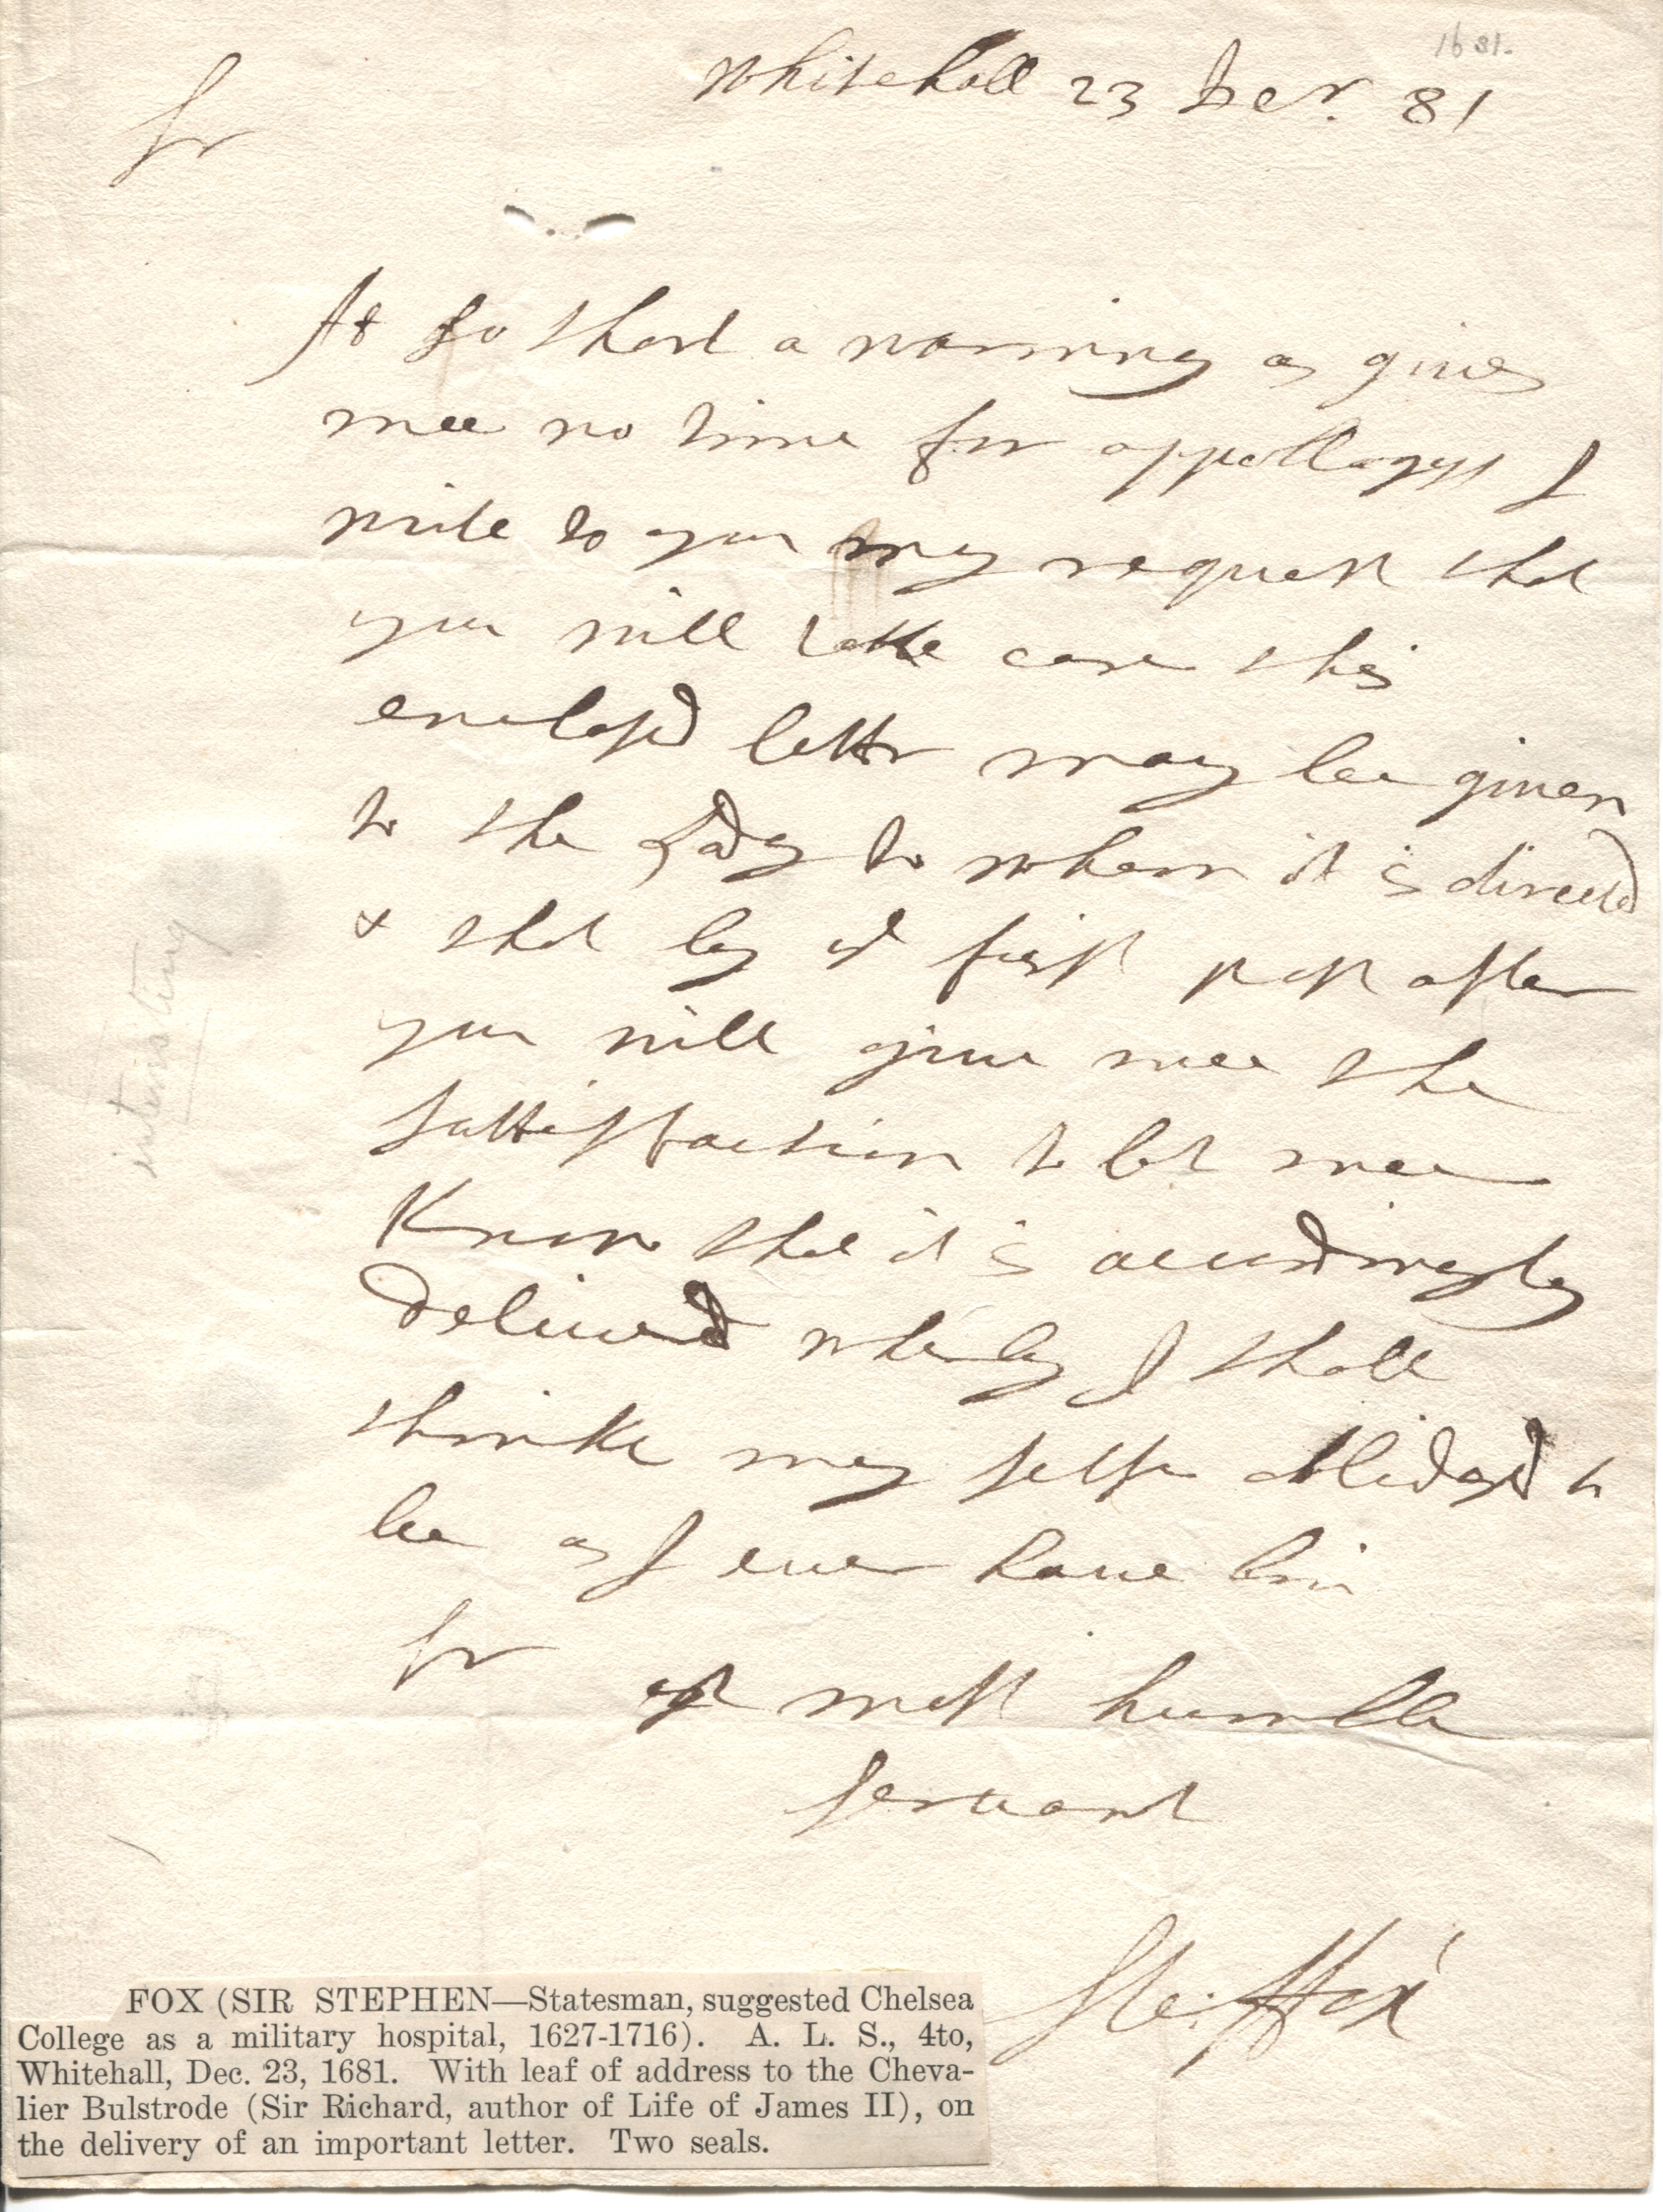 1681.
Whitehall 23 Decr. 81
Sr
At so short a warning as gives
mee no time for appollogys I
write to you my request that
you will take care this
enclosd letter may bee given
to the Lady to whom it is directed
& that by ye first post after
you will give mee the
sattisfaction to let mee
Know that it is accordingly
deliverd wherby I shall
thinke my selfe oblidgd to
bee as I ever have bin
Sr
yr most humble
servant
Ste: ffox
interesting
FOX (SIR STEPHEN—Statesman, suggested Chelsea
College as a military hospital, 1627-1716). A. L. S., 4to,
Whitehall, Dec. 23, 1681. With leaf of address to the Cheva-
lier Bulstrode (Sir Richard, author of Life of James II), on
the delivery of an important letter. Two seals.